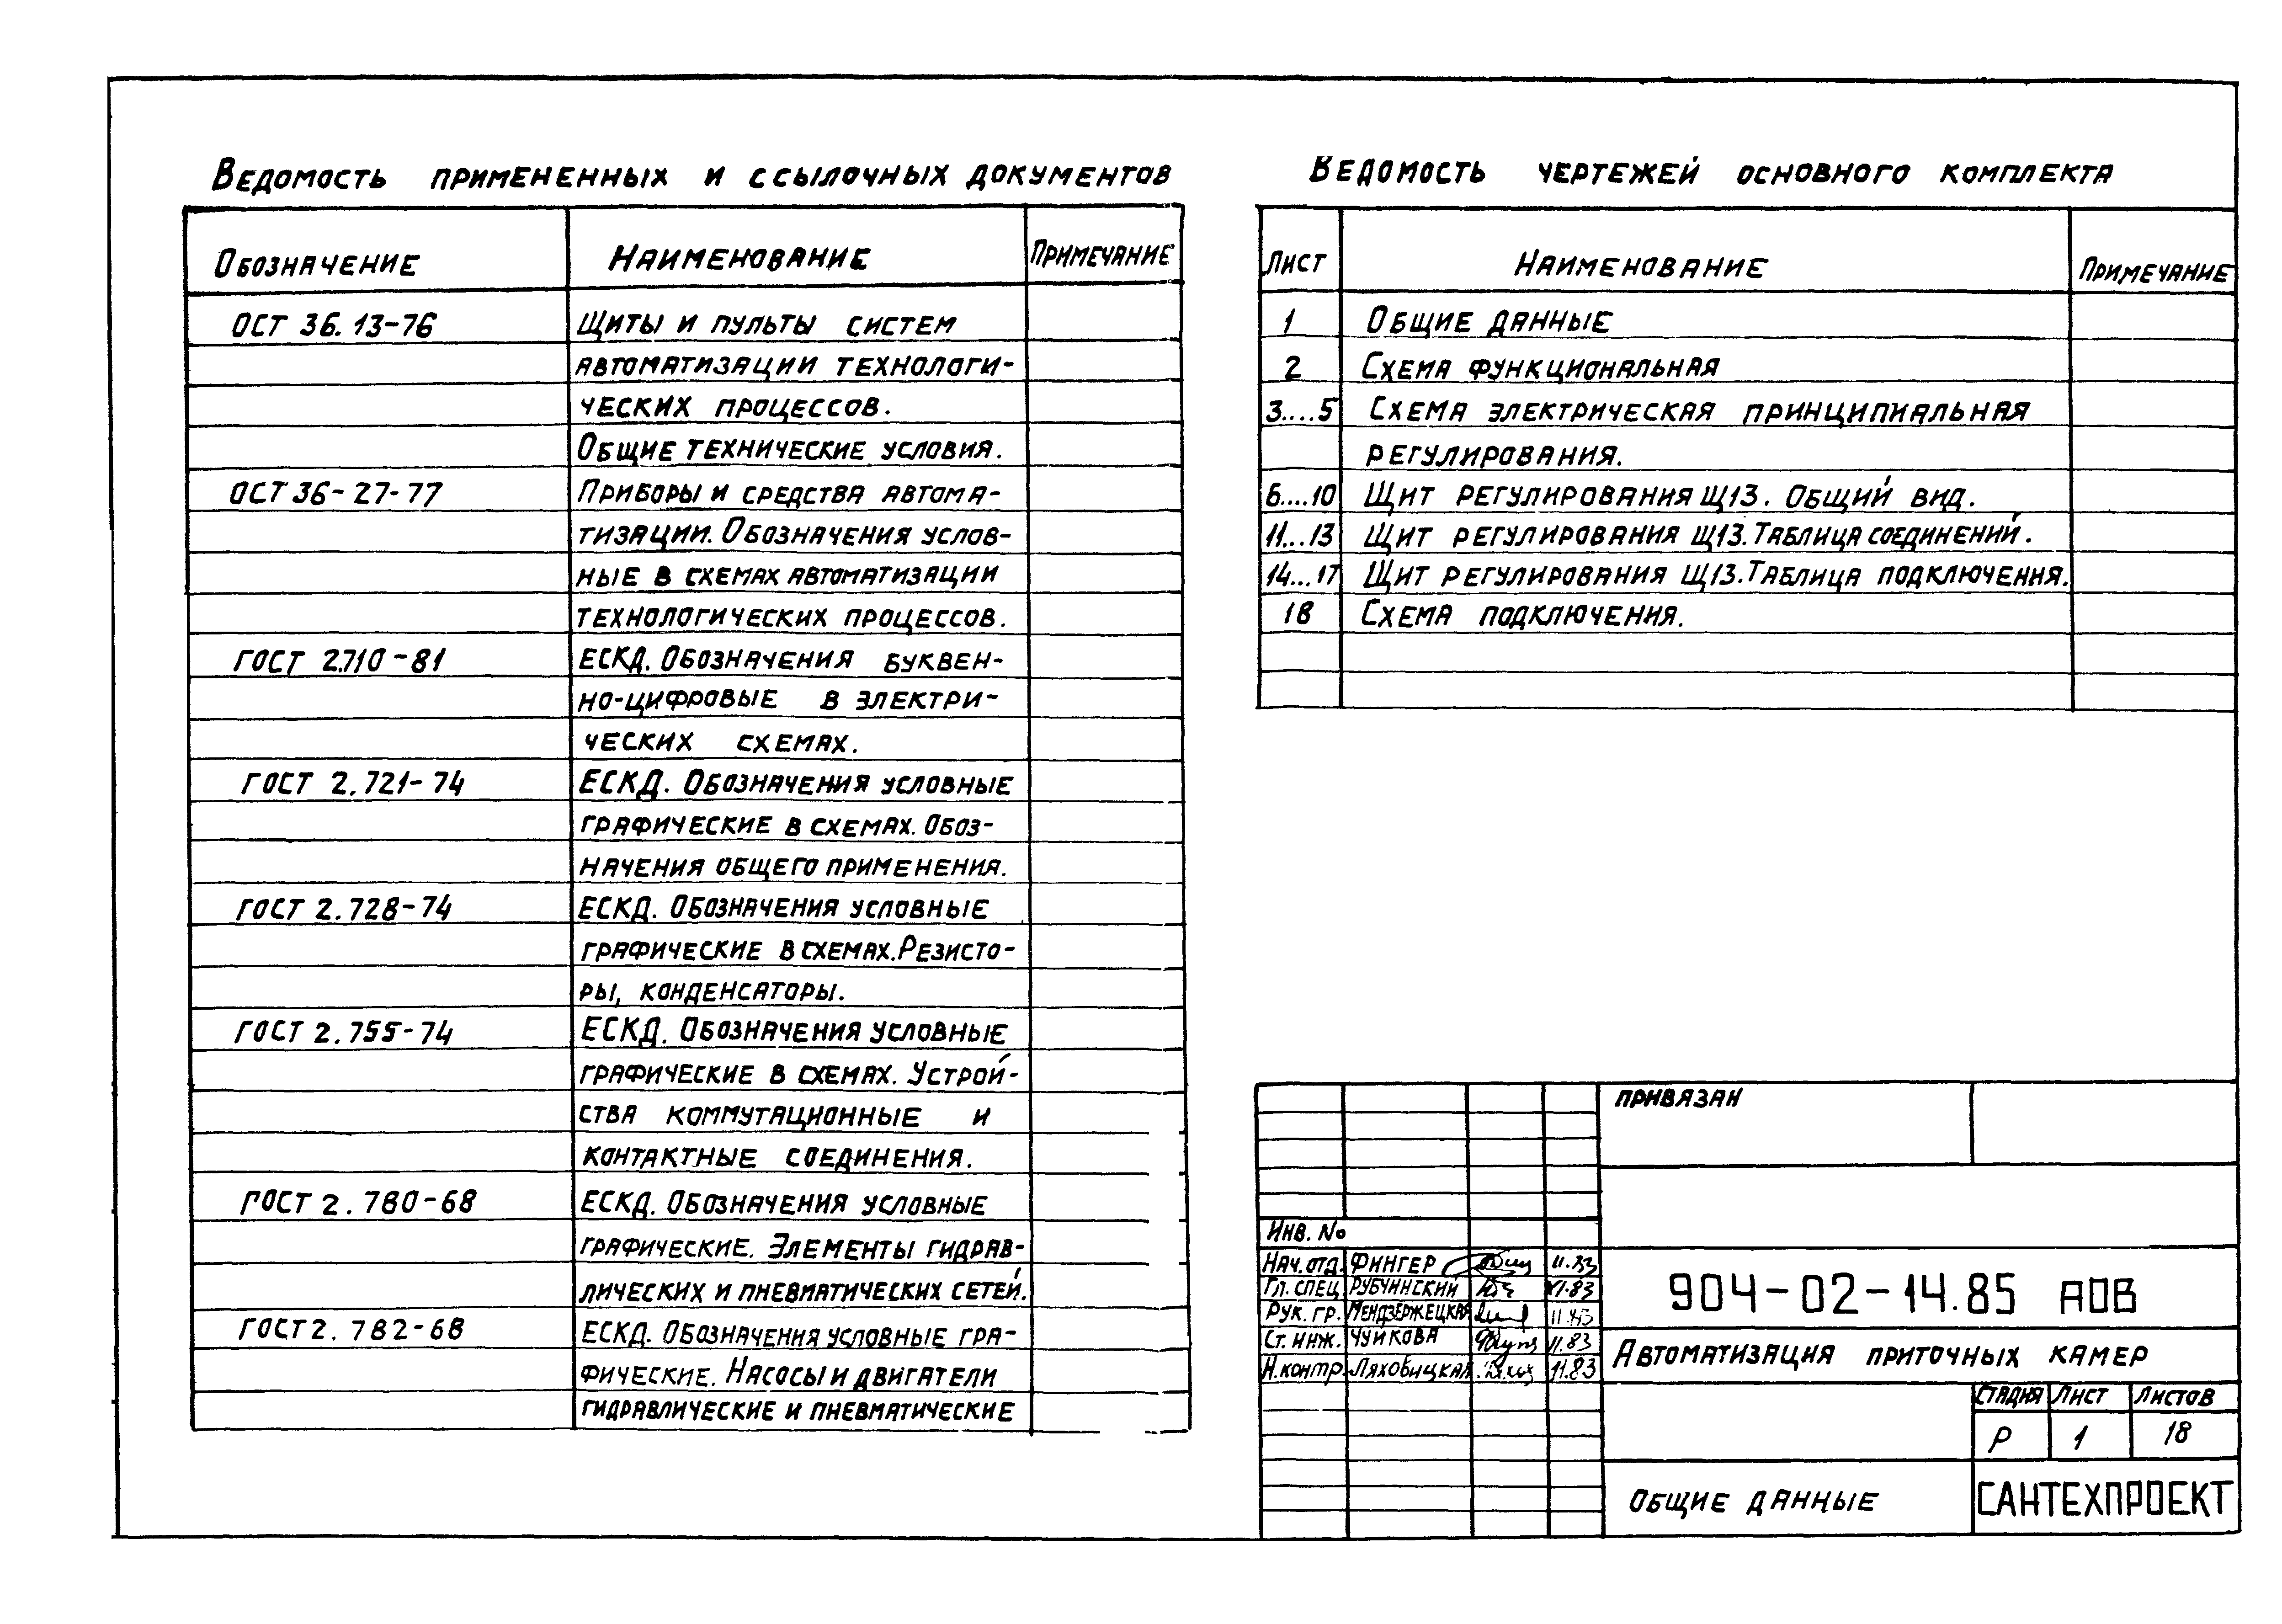 Ведомость примененных и ссылочных документов
Обозначение Наименование Примечание
ОСТ 36.13-76 Щиты и пульты систем
автоматизации технологи-
ческих процессов.
Общие технические условия.
ОСТ 36-27-77 Приборы и средства автома-
тизации. Обозначения услов-
ные в схемах автоматизации
технологических процессов.
ГОСТ 2.710-81 ЕСКД. Обозначения буквен-
но-цифровые в электри-
ческих схемах.
ГОСТ 2.721-74 ЕСКД. Обозначения условные
графические в схемах. Обоз-
начения общего применения.
ГОСТ 2.728-74 ЕСКД. Обозначения условные
графические в схемах. Резисто-
ры, конденсаторы.
ГОСТ 2.755-74 ЕСКД. Обозначения условные
графические в схемах. Устрой-
ства коммутационные и
контактные соединения.
ГОСТ 2.780-68 ЕСКД. Обозначения условные
графические. Элементы гидрав-
лических и пневматических сетей.
ГОСТ 2.782-68 ЕСКД. Обозначения условные гра-
фические. Насосы и двигатели
гидравлические и пневматические
Ведомость чертежей основного комплекта
Лист Наименование Примечание
1 Общие данные
2 Схема функциональная
3....5 Схема электрическая принципиальная
регулирования.
6....10 Щит регулирования Щ13. Общий вид.
11...13 Щит регулирования Щ13. Таблица соединений.
14...17 Щит регулирования Щ13. Таблица подключения.
18 Схема подключения.
Привязан
Инв. №
Нач. отд. Фингер 11.83
Гл. спец. Рубчинский XI.83
Рук. гр. Мендзержецкая 11.83
Ст. инж. Чуйкова 11.83
Н. контр. Ляховицкая 11.83
904-02-14.85 АОВ
Автоматизация приточных камер
Стадия Лист Листов
Р 1 18
Общие данные
САНТЕХПРОЕКТ